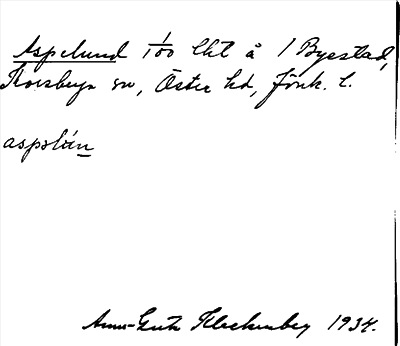 Aspelund 1/00 lht å 1 Byestad,
Korsberga sn, Öster hd, Jönk. l.
aspəlún
Anna-Greta Kleckenberg 1934.